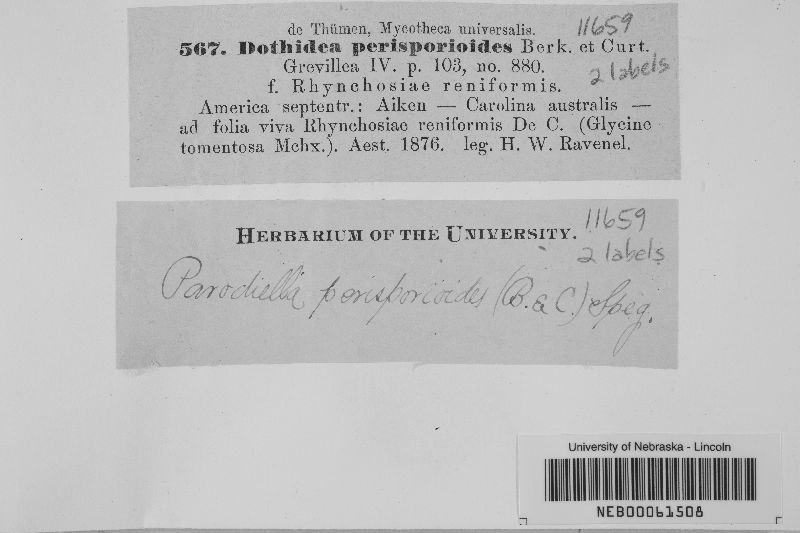 de Thümen, Mycotheca universalis.
11659
567. Dothidea perisporioides Berk. et Curt.
2 labels
Grevillea IV. p. 103, no. 880.
f. Rhynchosiae reniformis.
America septentr.: Aiken — Carolina australis —
ad folia viva Rhynchosiae reniformis De C. (Glycine
tomentosa Mchx.). Aest. 1876. leg. H. W. Ravenel.
11659
HERBARIUM OF THE UNIVERSITY.
2 labels
Parodiella perisporioides (B. & C.) Speg.
University of Nebraska - Lincoln
NEB00061508